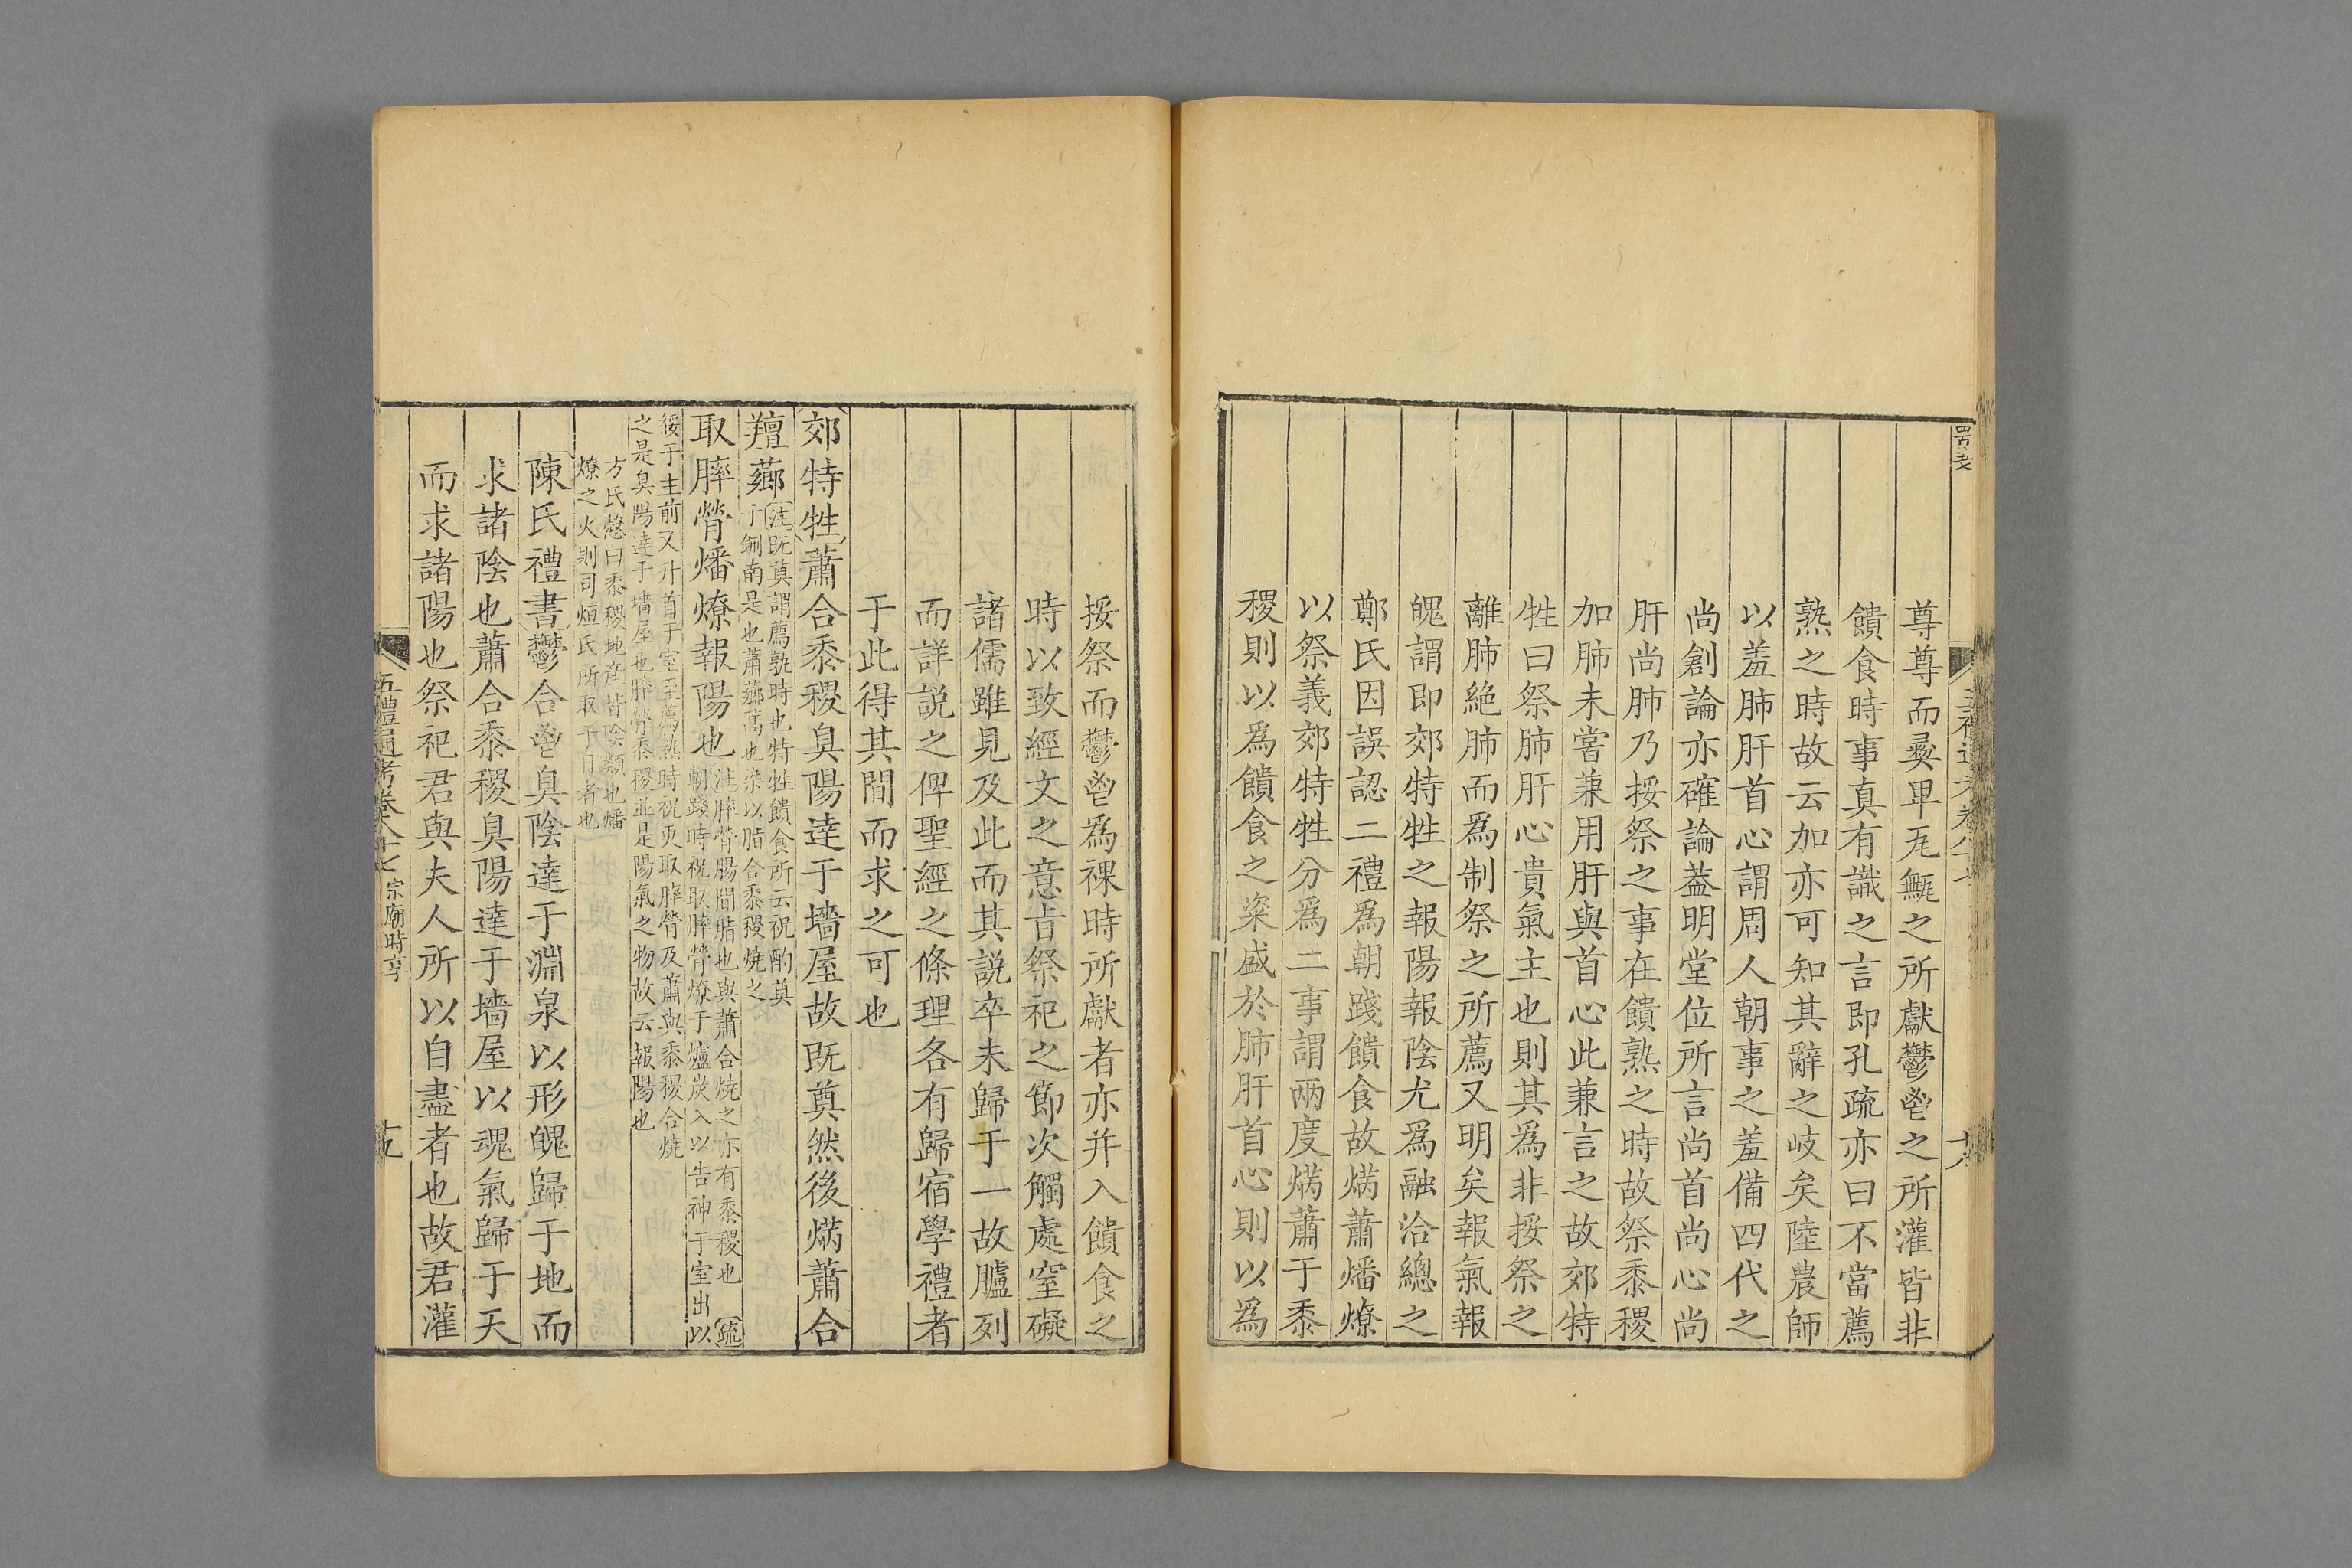 尊尊而彞𤰞𠒎甒之所獻鬱鬯之所灌皆非
饋食時事真有識之言即孔疏亦曰不當薦
熟之時故云加亦可知其辭之岐矣陸農師
以羞肺肝首心謂周人朝事之羞備四代之
尚創論亦確論葢明堂位所言尚首尚心尚
肝尚肺乃挼祭之事在饋熟之時故祭黍稷
加肺未嘗兼用肝與首心此兼言之故郊特
牲曰祭肺肝心貴氣主也則其為非挼祭之
離肺絶肺而為制祭之所薦又明矣報氣報
魄謂即郊特牲之報陽報陰尤為融洽總之
鄭氏因誤認二禮為朝踐饋食故焫蕭燔燎
以祭義郊特牲分為二事謂兩度焫蕭于黍
稷則以為饋食之粢盛於肺肝首心則以為
挼祭而鬱鬯為祼時所獻者亦并入饋食之
時以致經文之意㫖祭祀之節次觸處窒礙
諸儒雖見及此而其説卒未歸于一故臚列
而詳説之俾聖經之條理各有歸宿學禮者
于此得其間而求之可也
郊特牲蕭合黍稷臭陽達于墻屋故既奠然後焫蕭合
羶薌
注既奠謂薦孰時也特牲饋食所云祝酌奠
于鉶南是也蕭薌蒿也染以脂合黍稷燒之
取膟膋燔燎報陽也
注膟膋腸間脂也與蕭合燒之亦有黍稷也 疏
朝踐時祝取膟膋燎于爐炭入以告神于室出以
綏于主前又升首于室至薦熟時祝更取膟膋及蕭與黍稷合燒
之是臭陽達于墻屋也膟膋黍稷並是陽氣之物故云報陽也
方氏慤曰黍稷地產皆陰類也燔
燎之火則司烜氏所取于日者也
陳氏禮書鬱合鬯臭陰達于淵泉以形魄歸于地而
求諸陰也蕭合黍稷臭陽達于墻屋以魂氣歸于天
而求諸陽也祭祀君與夫人所以自盡者也故君灌
五禮通考卷八十七 宗廟時享